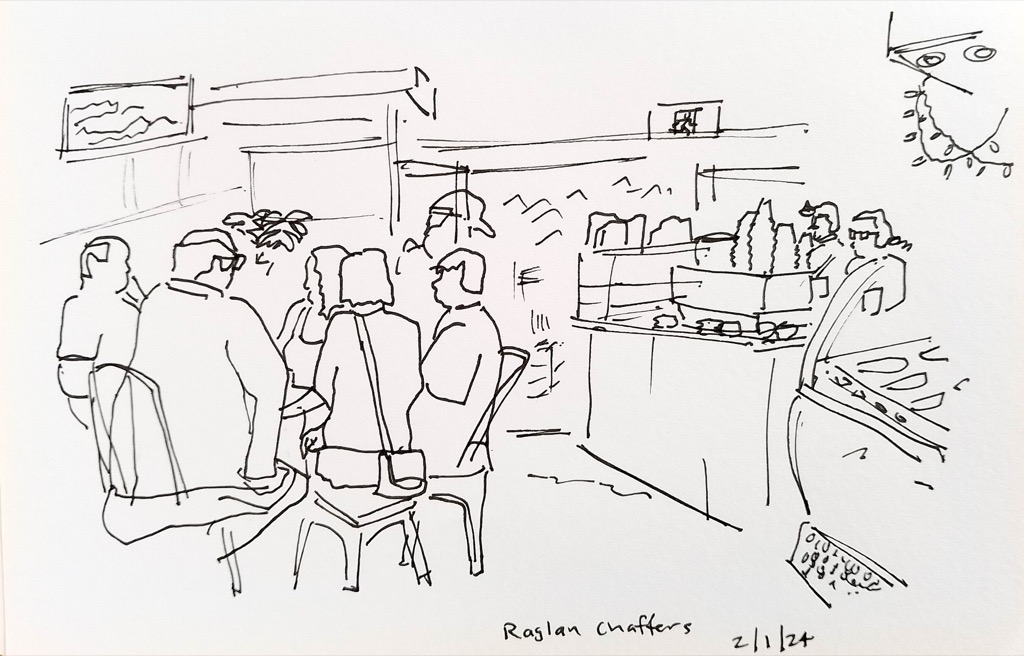 Raglan Chaffers 2/1/24